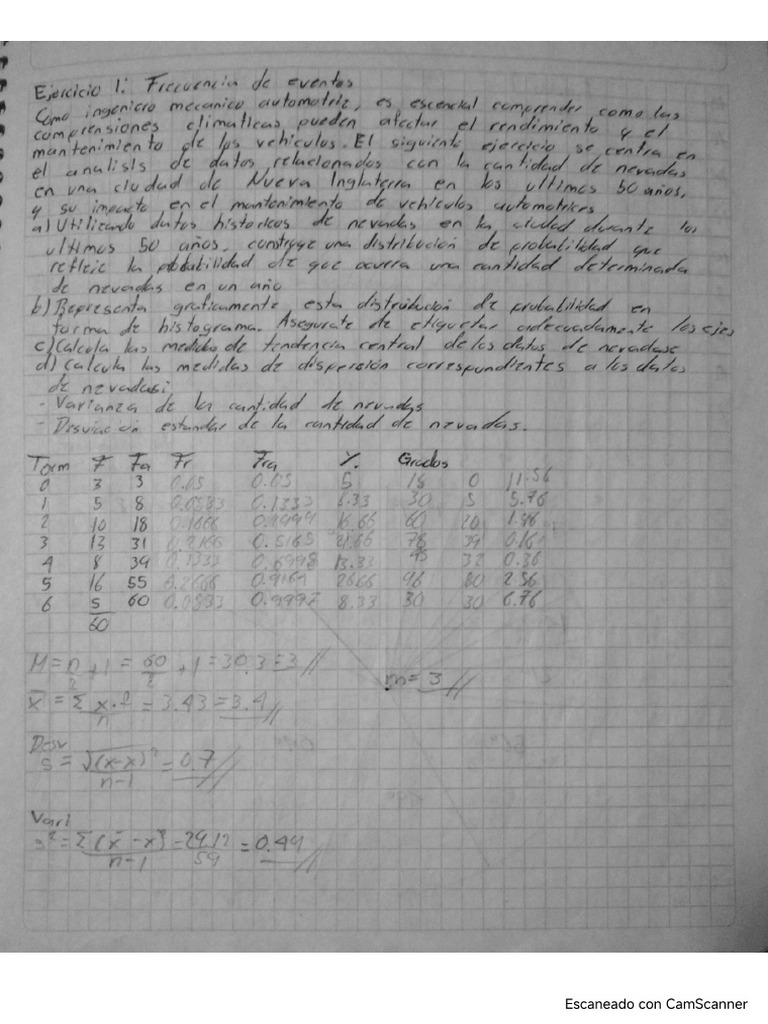 Ejercicio 1: Frecuencia de eventos
Como ingeniero mecanico automotriz, es escencial comprender como las
comprensiones climaticas pueden afectar el rendimiento y el
mantenimiento de los vehiculos. El siguiente ejercicio se centra en
el analisis de datos relacionados con la cantidad de nevadas
en una ciudad de Nueva Inglaterra en los ultimos 50 años,
y su impacto en el mantenimiento de vehiculos automotrices
a) Utilizando datos historicos de nevadas en la ciudad durante los
ultimos 50 años, construye una distribución de probabilidad que
refleje la probabilidad de que ocurra una cantidad determinada
de nevadas en un año
b) Representa graficamente esta distribución de probabilidad en
forma de histograma. Asegurate de etiquetar adecuadamente los ejes
c) Calcula las medidas de tendencia central de los datos de nevadas
d) Calcula las medidas de dispersión correspondientes a los datos
de nevadas:
- Varianza de la cantidad de nevadas
- Desviación estandar de la cantidad de nevadas.
Torm F Fa Fr Fra %. Grados
0 3 3 0.05 0.05 5 18 0 11.56
1 5 8 0.0833 0.1333 8.33 30 5 5.76
2 10 18 0.1666 0.2999 16.66 60 20 1.96
3 13 31 0.2166 0.5165 21.66 78 39 0.16
4 8 39 0.1333 0.6998 13.33 32 0.36
5 16 55 0.2666 0.9164 26.66 96 80 2.56
6 5 60 0.0833 0.9997 8.33 30 30 6.76
60
M = n/2 + 1 = 60/2 + 1 = 30.3 = 3 // m = 3 //
x̄ = Σ x·f / n = 3.43 = 3.4 //
Desv
s = √(x-x)² / n-1 = 0.7 //
Vari
s² = Σ(x̄-x)² / n-1 = 29.12 / 59 = 0.49 //
Escaneado con CamScanner